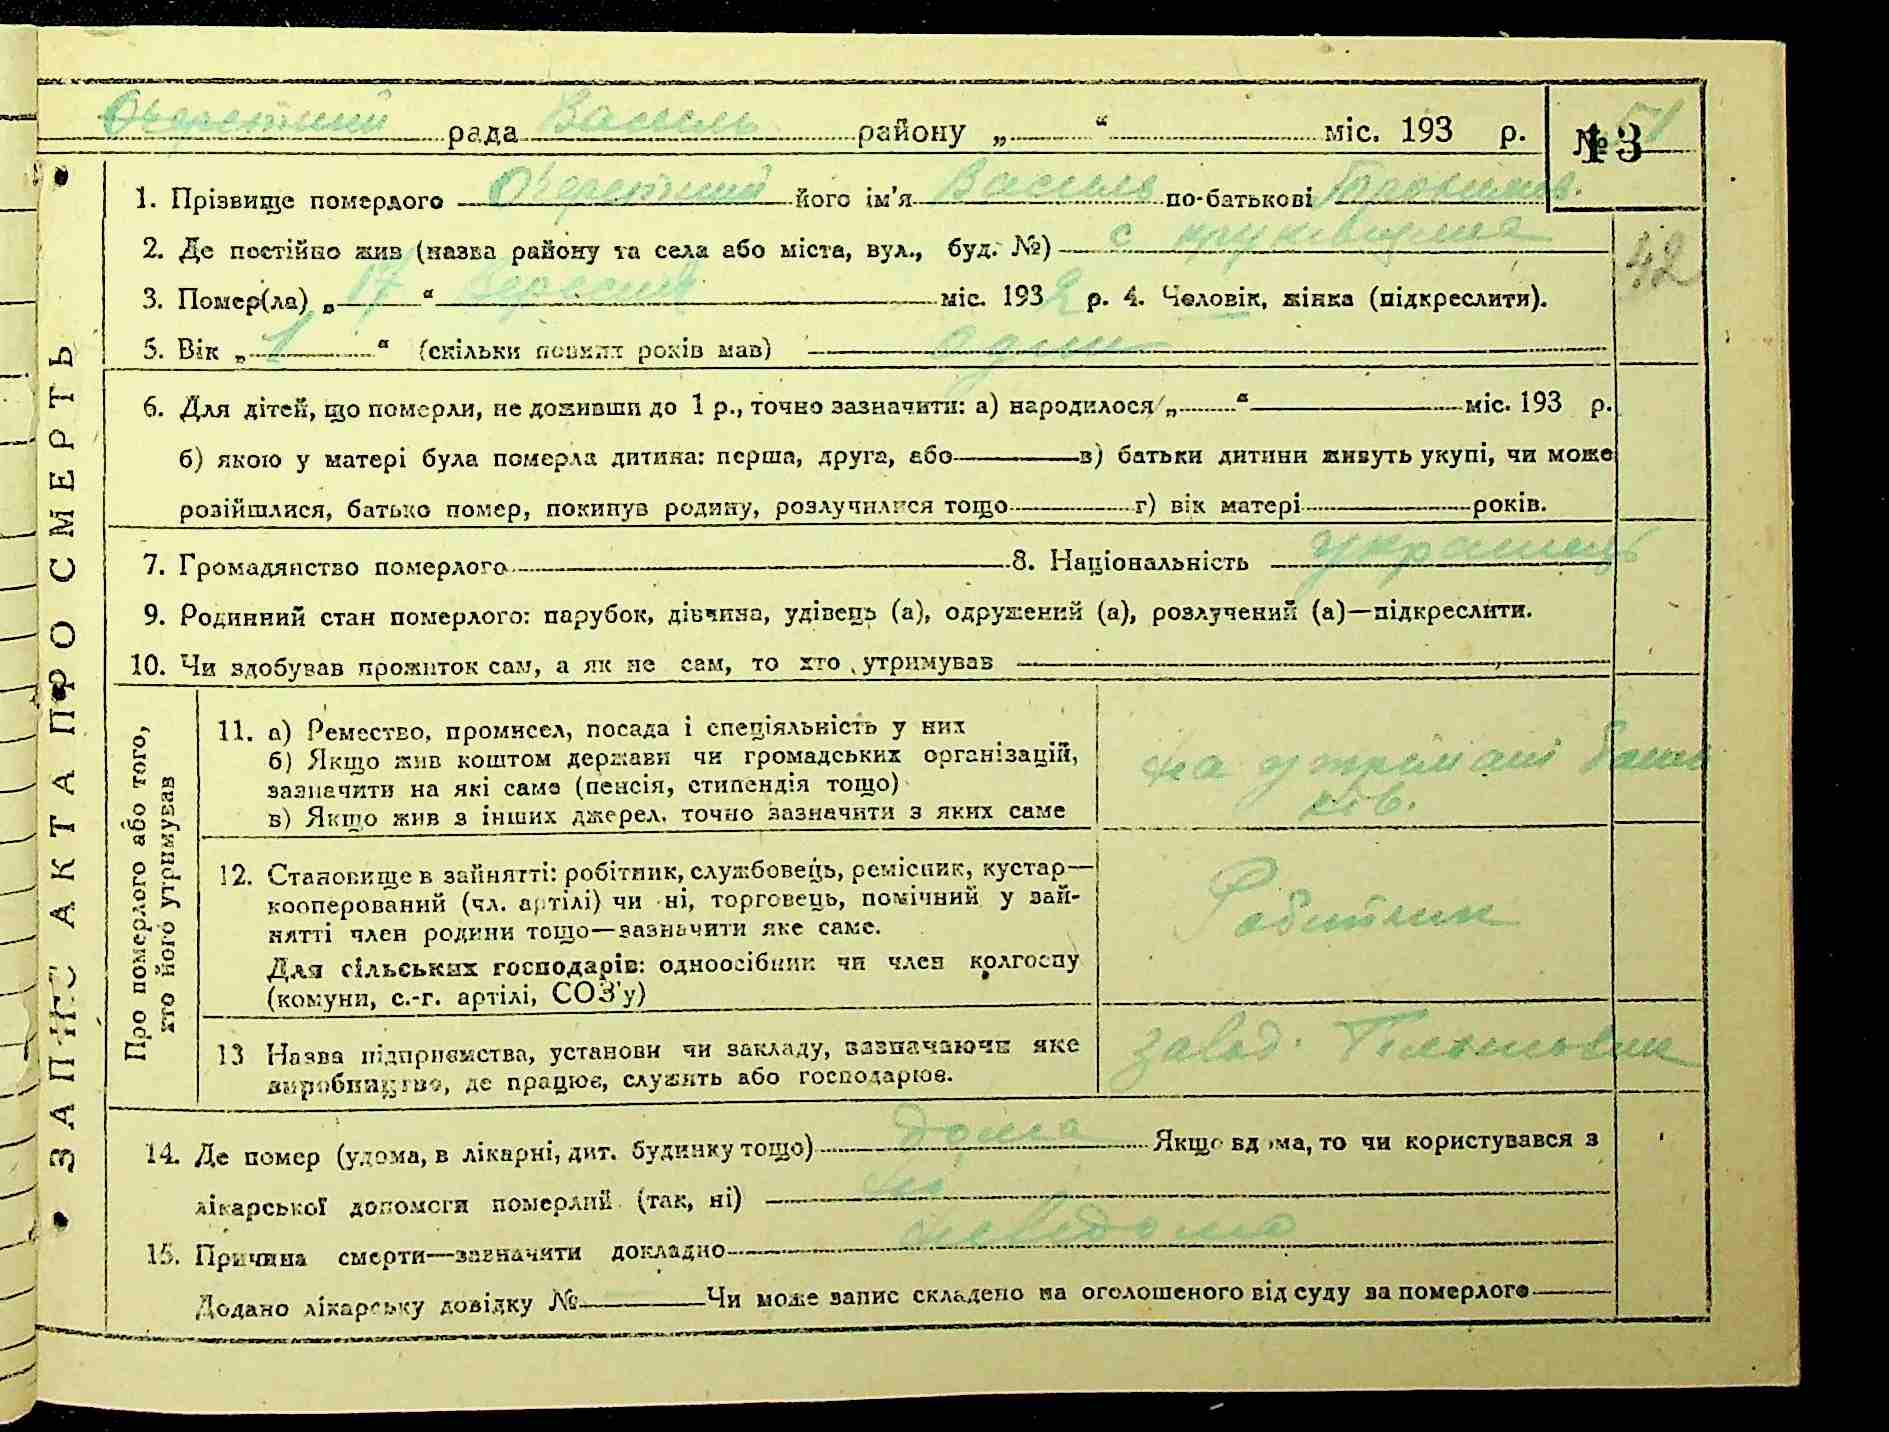 Очеретний рада Василь районy „ “ міс. 193 р. № 13 51
1. Прізвище померлого Очеретний його ім'я Василь по-батькові Трохимов.
2. Де постійно жив (назва району та села або міста, вул., буд. №) с
42
3. Помер(ла) „17“ Вересня міс. 1932 р. 4. Чоловік, жінка (підкреслити).
5. Вік „1“ (скільки повних років мав) один
6. Для дітей, що померли, не доживши до 1 р., точно зазначити: а) народилося „ “ міс. 193 р.
б) якою у матері була померла дитина: перша, друга, або в) батьки дитини живуть укупі, чи може
розійшлися, батько помер, покинув родину, розлучилися тощо г) вік матері років.
7. Громадянство померлого 8. Національність українець
9. Родинний стан померлого: парубок, дівчина, удівець (а), одружений (а), розлучений (а)—підкреслити.
10. Чи здобував прожиток сам, а як не сам, то хто утримував
ЗАПИС АКТА ПРО СМЕРТЬ
Про померлого або того,
хто його утримував
11. а) Ремество, промисел, посада і спеціяльність у них
б) Якщо жив коштом держави чи громадських організацій,
зазначити на які саме (пенсія, стипендія тощо)
в) Якщо жив з інших джерел, точно зазначити з яких саме
на утримані бать
ків.
12. Становище в зайнятті: робітник, службовець, ремісник, кустар—
кооперований (чл. артілі) чи ні, торговець, помічний у зай-
нятті член родини тощо—зазначити яке саме.
Для сільських господарів: одноосібник чи член колгоспу
(комуни, с.-г. артілі, СОЗ'у)
Робітник
13 Назва підприємства, установи чи закладу, зазначаючи яке
виробництво, де працює, служить або господарює.
завод.
14. Де помер (удома, в лікарні, дит. будинку тощо) дома Якщо вдома, то чи користувався з
лікарської допомоги померлий (так, ні) ні
15. Причина смерти—зазначити докладно невідома
Додано лікарську довідку № Чи може запис складено на оголошеного від суду за померлого